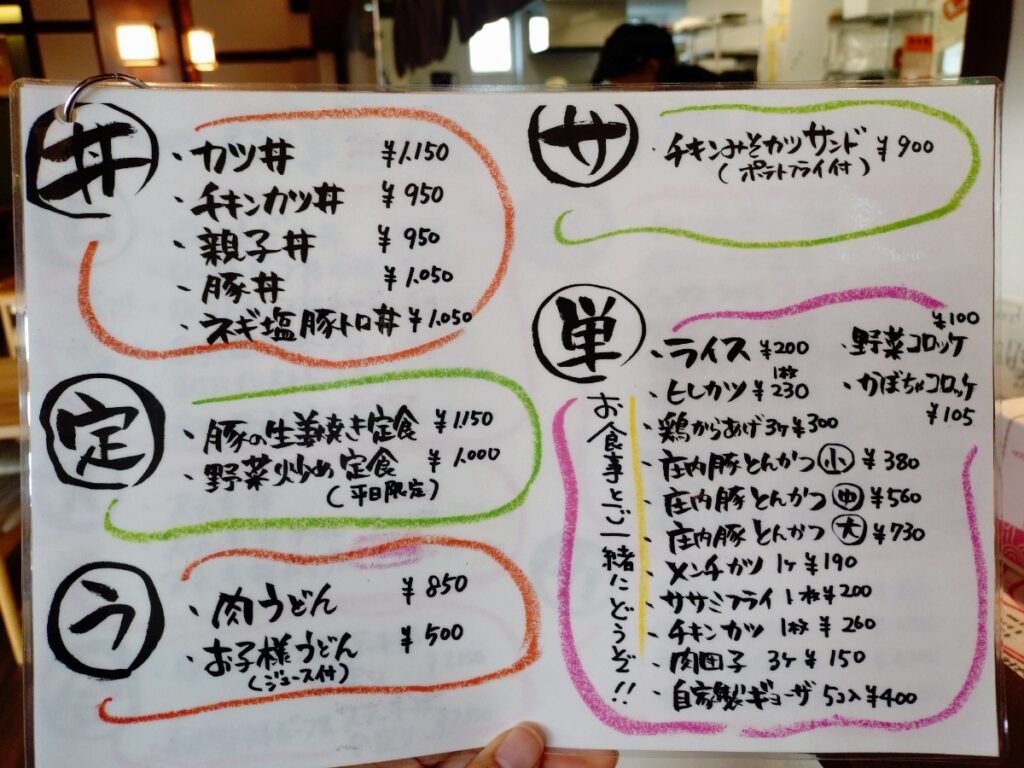 丼
・カツ丼 ¥1.150
・チキンカツ丼 ¥950
・親子丼 ¥950
・豚丼 ¥1.050
・ネギ塩豚トロ丼 ¥1.050
定
・豚の生姜焼き定食 ¥1.150
・野菜炒め定食 ¥1.000
(平日限定)
う
・肉うどん ¥850
・お子様うどん ¥500
(ジュース付)
サ
・チキンみそカツサンド ¥900
(ポテトフライ付)
単
お食事とご一緒にどうぞ!!
・ライス ¥200
・ヒレカツ 1枚 ¥230
・鶏からあげ3ヶ¥300
・庄内豚とんかつ 小 ¥380
・庄内豚とんかつ 中 ¥560
・庄内豚とんかつ 大 ¥730
・メンチカツ 1ヶ ¥190
・ササミフライ 1枚 ¥200
・チキンカツ 1枚 ¥260
・肉団子 3ヶ ¥150
・自家製ギョーザ 5コ入¥400
・野菜コロッケ ¥100
・かぼちゃコロッケ
¥105